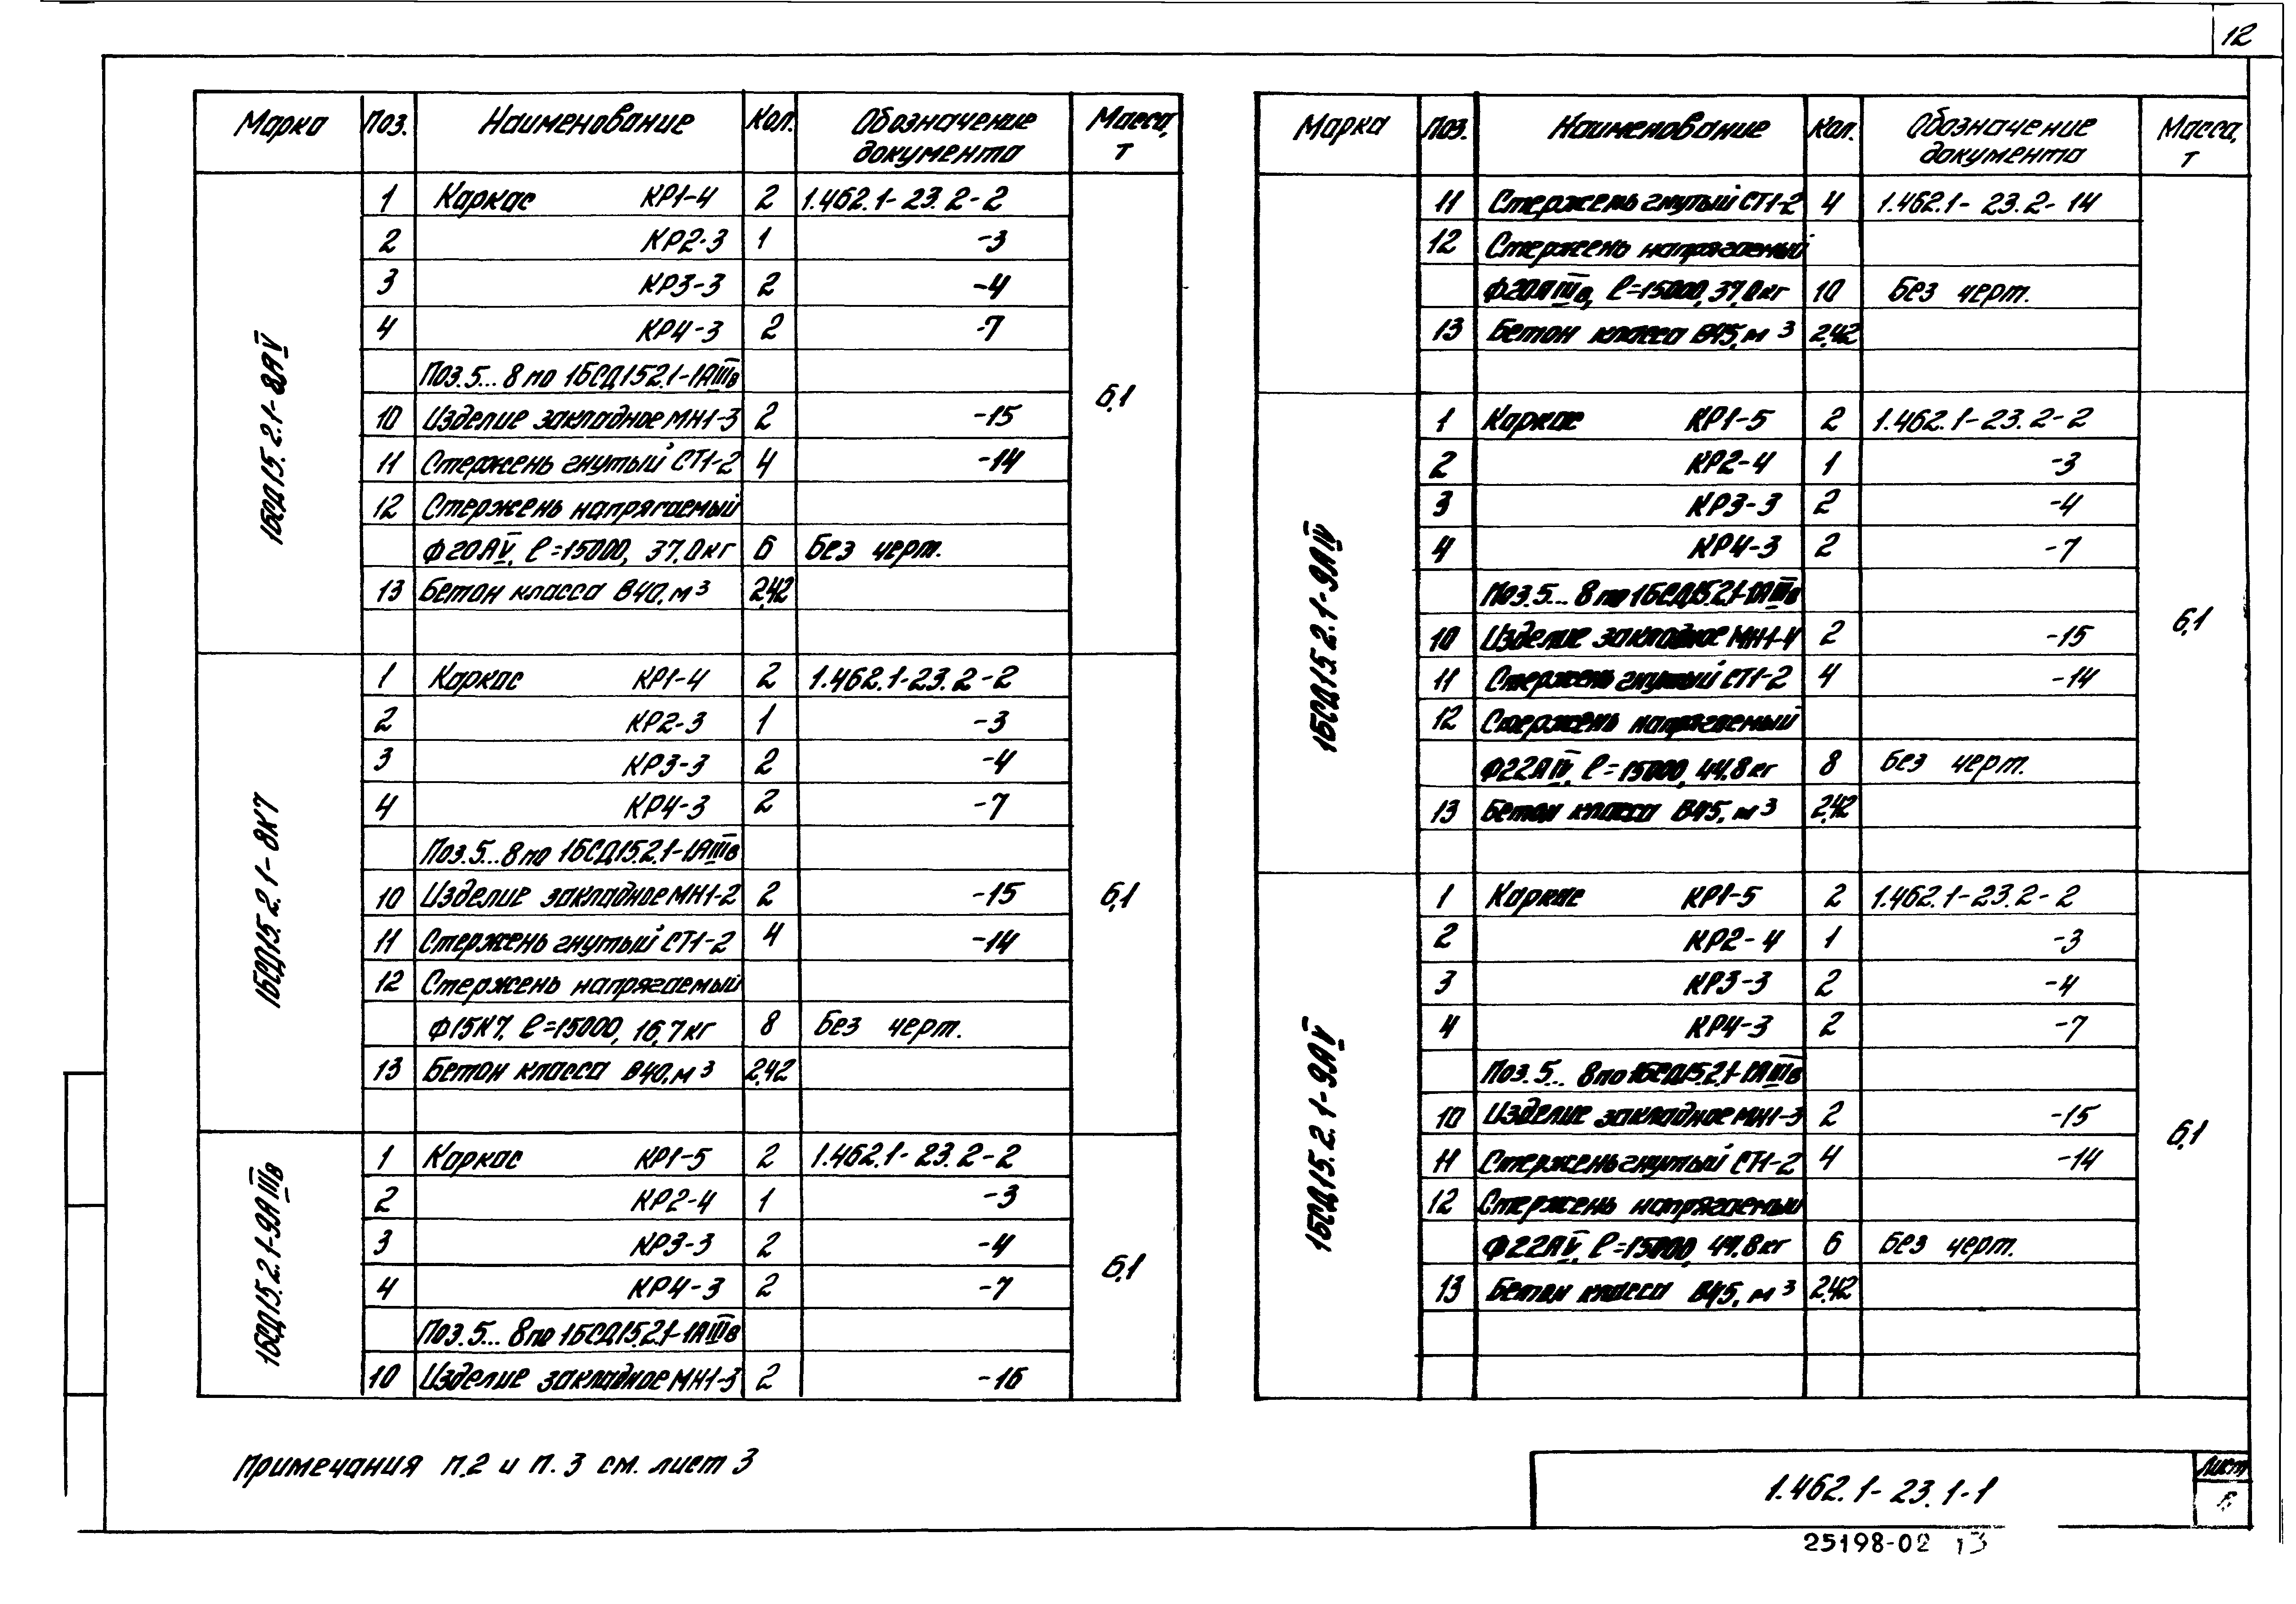 12
Марка Поз. Наименование Кол. Обозначение документа Масса, т
1БСД15.2.1-8АV
1 Каркас КР1-4 2 1.462.1-23.2-2
2 КР2-3 1 -3
3 КР3-3 2 -4
4 КР4-3 2 -7
Поз.5...8 по 1БСД15.2.1-1АIIIв
6,1
10 Изделие закладное МН1-3 2 -15
11 Стержень гнутый СТ1-2 4 -14
12 Стержень напрягаемый
Ф20АV, ℓ=15000, 37,0кг 6 Без черт.
13 Бетон класса В40, м³ 2,42
1БСД15.2.1-8К7
1 Каркас КР1-4 2 1.462.1-23.2-2
2 КР2-3 1 -3
3 КР3-3 2 -4
4 КР4-3 2 -7
Поз.5...8 по 1БСД15.2.1-1АIIIв
10 Изделие закладное МН1-2 2 -15
6,1
11 Стержень гнутый СТ1-2 4 -14
12 Стержень напрягаемый
Ф15К7, ℓ=15000, 16,7кг 8 Без черт.
13 Бетон класса В40, м³ 2,42
1БСД15.2.1-9АIIIв
1 Каркас КР1-5 2 1.462.1-23.2-2
2 КР2-4 1 -3
3 КР3-3 2 -4
6,1
4 КР4-3 2 -7
Поз.5...8 по 1БСД15.2.1-1АIIIв
10 Изделие закладное МН1-3 2 -16
Марка Поз. Наименование Кол. Обозначение документа Масса, т
11 Стержень гнутый СТ1-2 4 1.462.1-23.2-14
12 Стержень напрягаемый
Ф20АIIIв, ℓ=15000, 37,0кг 10 Без черт.
13 Бетон класса В45, м³ 2,42
1БСД15.2.1-9АIV
1 Каркас КР1-5 2 1.462.1-23.2-2
2 КР2-4 1 -3
3 КР3-3 2 -4
4 КР4-3 2 -7
Поз.5...8 по 1БСД15.2.1-1АIIIв
6,1
10 Изделие закладное МН1-4 2 -15
11 Стержень гнутый СТ1-2 4 -14
12 Стержень напрягаемый
Ф22АIV, ℓ=15000, 44,8кг 8 Без черт.
13 Бетон класса В45, м³ 2,42
1БСД15.2.1-9АV
1 Каркас КР1-5 2 1.462.1-23.2-2
2 КР2-4 1 -3
3 КР3-3 2 -4
4 КР4-3 2 -7
Поз.5...8 по 1БСД15.2.1-1АIIIв
10 Изделие закладное МН1-3 2 -15
6,1
11 Стержень гнутый СТ1-2 4 -14
12 Стержень напрягаемый
Ф22АV, ℓ=15000, 44,8кг 6 Без черт.
13 Бетон класса В45, м³ 2,42
Примечания п.2 и п.3 см. лист 3
1.462.1-23.1-1
Лист
25198-02 13